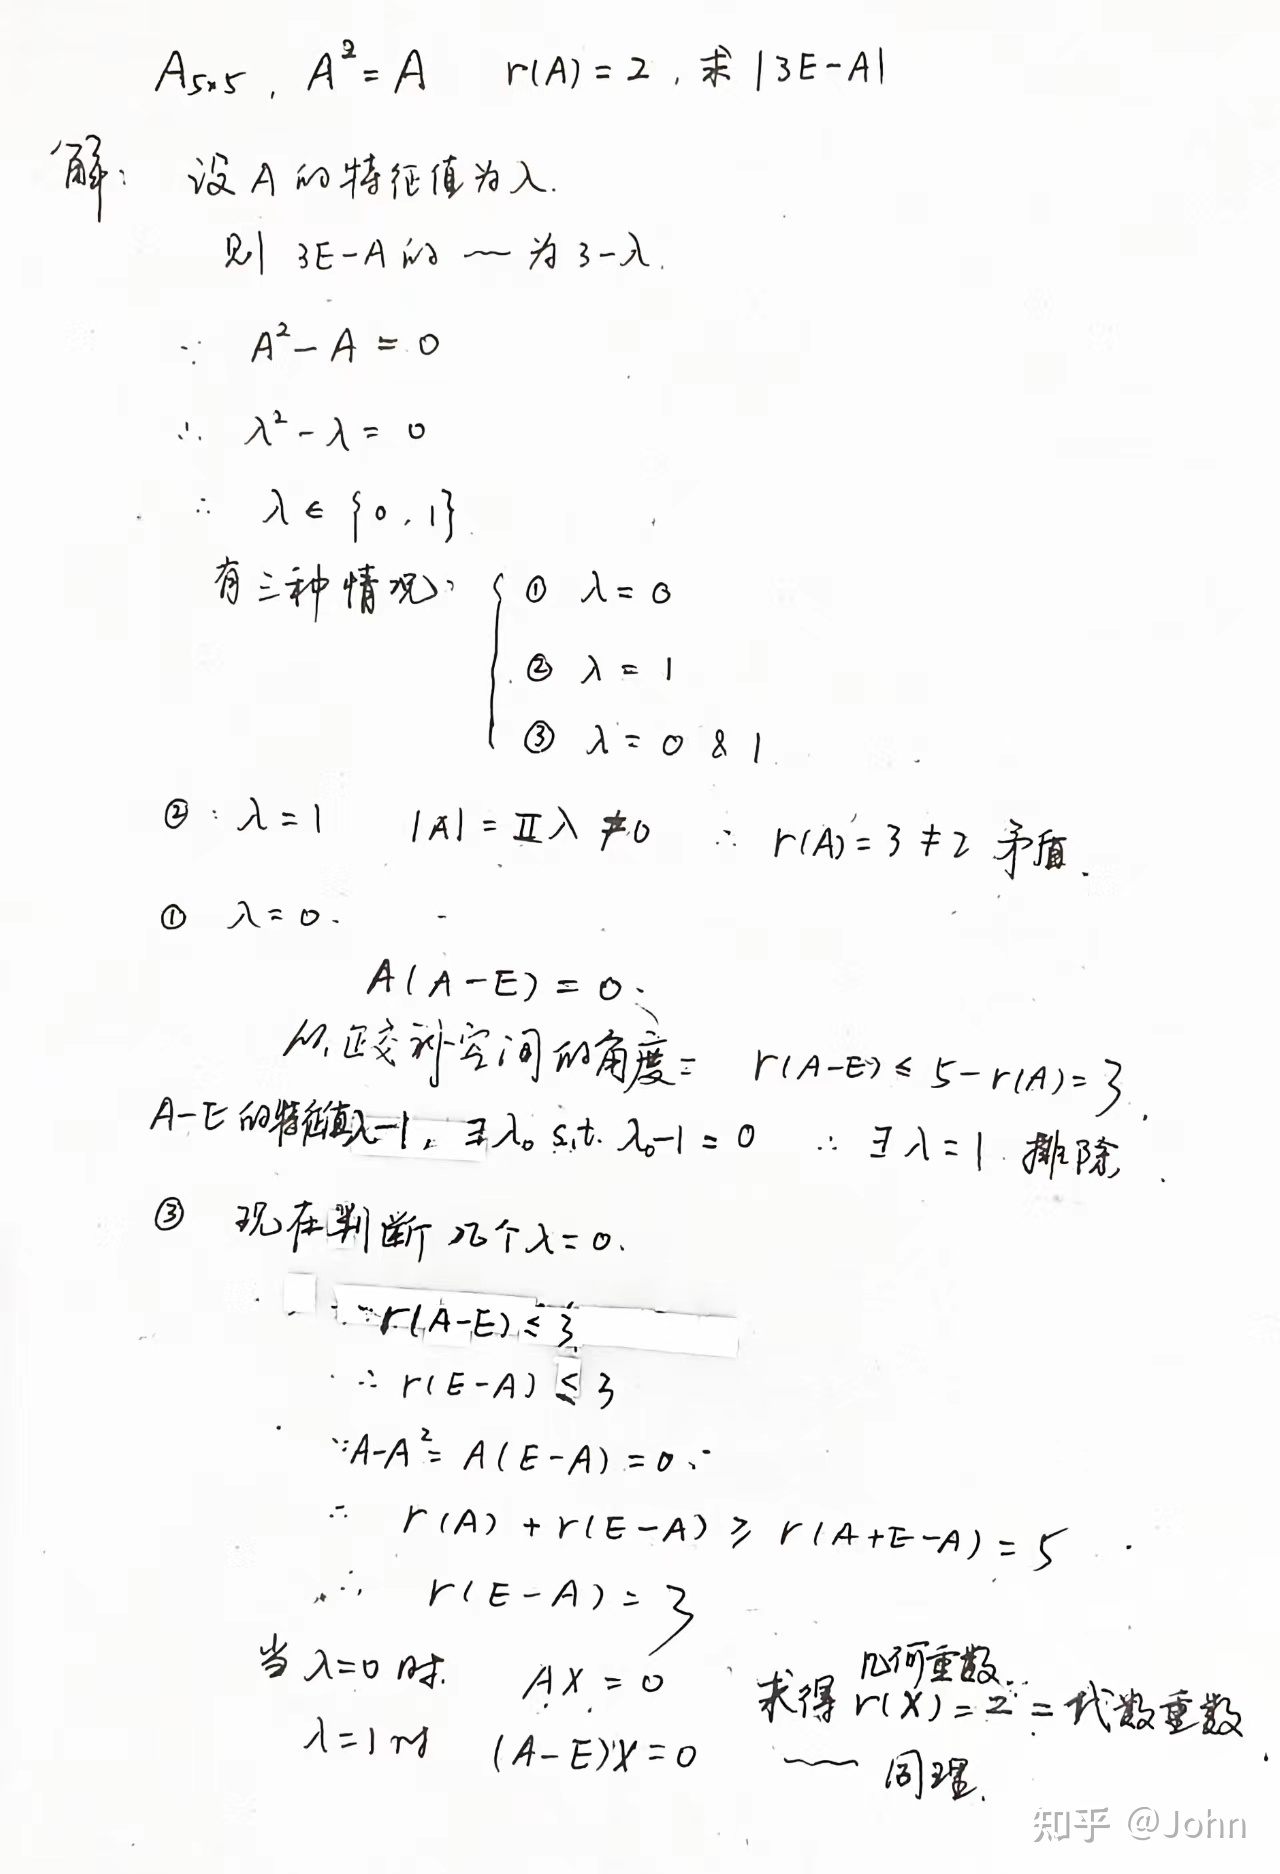 A₅ₓ₅, A² = A r(A) = 2, 求 |3E-A|
解: 设 A 的特征值为 λ.
则 3E-A 的 ～ 为 3-λ.
∵ A² - A = 0
∴ λ² - λ = 0
∴ λ ∈ {0, 1}
有三种情况: { ① λ = 0
② λ = 1
③ λ = 0 & 1
②: λ = 1 |A| = Πλ ≠ 0 ∴ r(A) = 3 ≠ 2 矛盾.
① λ = 0.
A(A-E) = 0.
从正交补空间的角度: r(A-E) ≤ 5-r(A) = 3.
A-E 的特征值λ-1, ∃λ₀ s.t. λ₀-1 = 0 ∴ ∃ λ = 1 排除.
③ 现在判断几个 λ = 0.
∵ r(A-E) ≤ 3
∴ r(E-A) ≤ 3
∵ A-A² = A(E-A) = 0.
∴ r(A) + r(E-A) ≥ r(A+E-A) = 5
∴ r(E-A) = 3
当 λ=0 时. AX = 0 求得 几何重数 r(X) = 2 = 代数重数
λ=1 时 (A-E)X = 0 ～ 同理.
知乎 @John